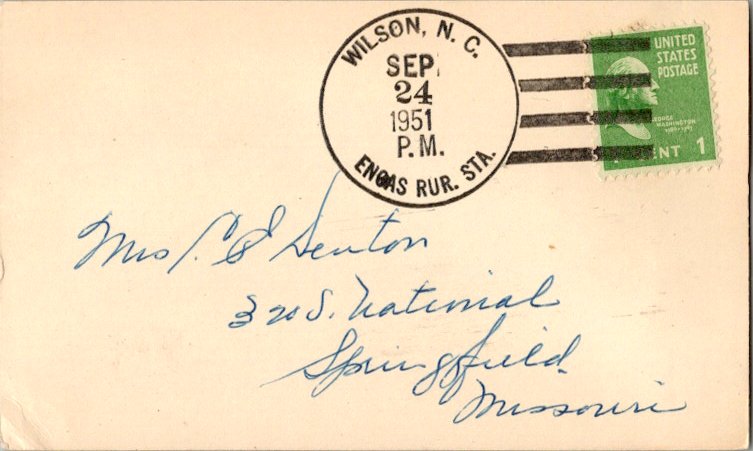 WILSON, N. C.
SEP
24
1951
P.M.
ENOAS RUR. STA.
UNITED
STATES
POSTAGE
GEORGE
WASHINGTON
CENT 1
Mrs Denton
320 S. National
Springfield
Missouri